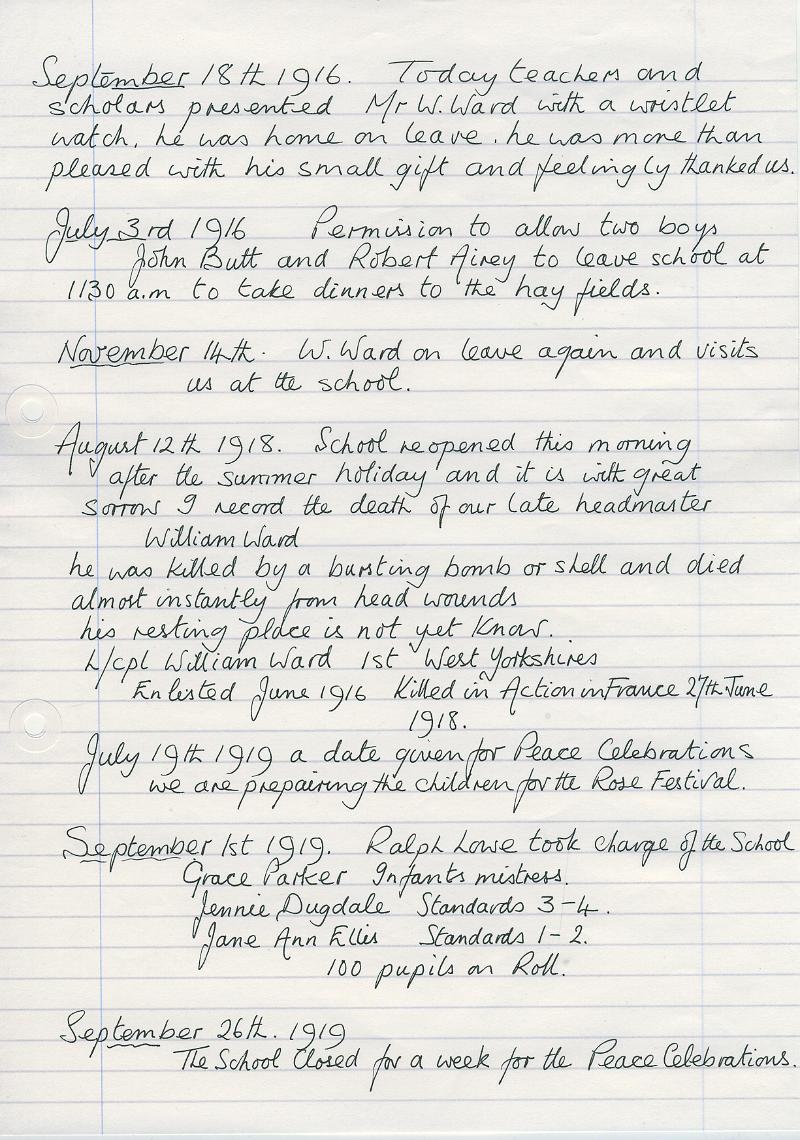 September 18th 1916. Today teachers and
scholars presented Mr W. Ward with a wristlet
watch, he was home on leave. he was more than
pleased with his small gift and feelingly thanked us.
July 3rd 1916 Permission to allow two boys
John Butt and Robert Airey to leave school at
1130 a.m to take dinners to the hay fields.
November 14th. W. Ward on leave again and visits
us at the school.
August 12th 1918. School reopened this morning
after the summer holiday and it is with great
sorrow I record the death of our late headmaster
William Ward
he was killed by a bursting bomb or shell and died
almost instantly from head wounds
his resting place is not yet Know.
L/cpl William Ward 1st West Yorkshires
Enlisted June 1916 Killed in Action in France 27th June
1918.
July 19th 1919 a date given for Peace Celebrations
we are prepairing the children for the Rose Festival.
September 1st 1919. Ralph Lowe took charge of the School
Grace Parker Infants mistress.
Jennie Dugdale Standards 3-4.
Jane Ann Ellis Standards 1-2.
100 pupils on Roll.
September 26th. 1919
The School Closed for a week for the Peace Celebrations.